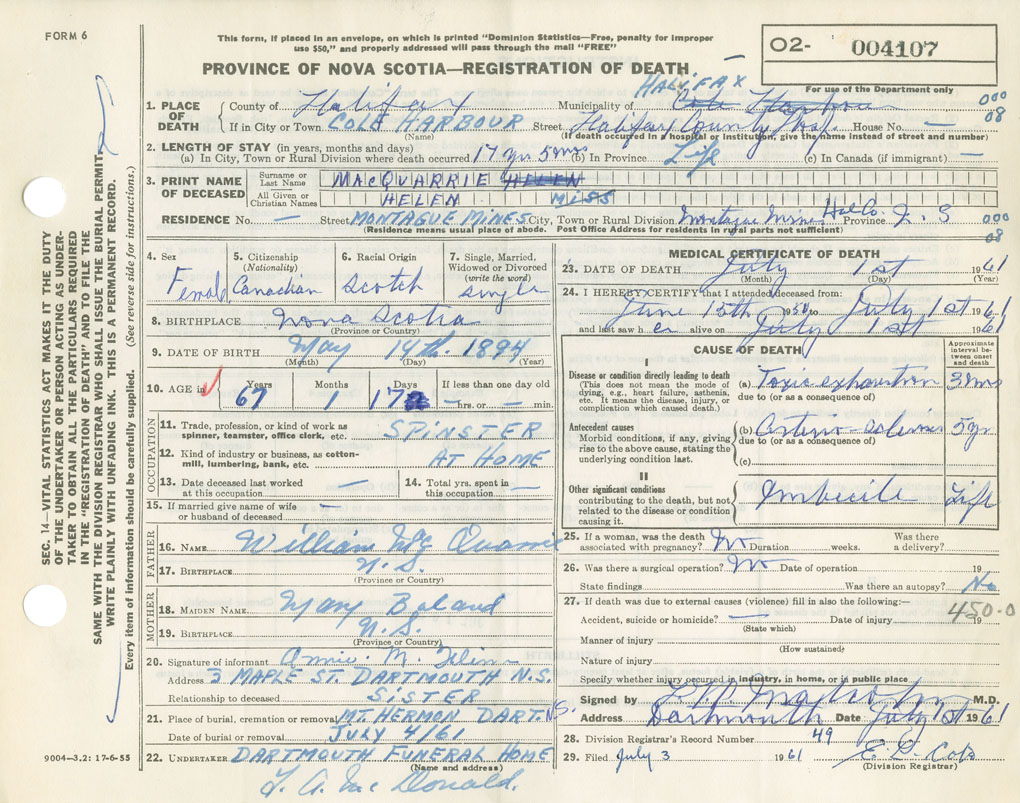 FORM 6
This form, if placed in an envelope, on which is printed "Dominion Statistics—Free, penalty for improper
use $50," and properly addressed will pass through the mail "FREE"
O2- 004107
PROVINCE OF NOVA SCOTIA—REGISTRATION OF DEATH
For use of the Department only
HALIFAX
1. PLACE OF DEATH County of Halifax Municipality of Cole Harbour 000
If in City or Town COLE HARBOUR Street Halifax County Hosp. House No. — 08
(Name) (If death occurred in a hospital or institution, give the name instead of street and number)
2. LENGTH OF STAY (in years, months and days)
(a) In City, Town or Rural Division where death occurred 17 yrs 5 mos (b) In Province Life (c) In Canada (if immigrant) —
3. PRINT NAME OF DECEASED Surname or Last Name MACQUARRIE HELEN
All Given or Christian Names HELEN MISS
RESIDENCE No. — Street MONTAGUE MINES City, Town or Rural Division Montague Mines Hal Co. Province N. S 000
(Residence means usual place of abode. Post Office Address for residents in rural parts not sufficient) 08
4. Sex Female
5. Citizenship (Nationality) Canadian
6. Racial Origin Scotch
7. Single, Married, Widowed or Divorced (write the word) Single
8. BIRTHPLACE Nova Scotia
(Province or Country)
9. DATE OF BIRTH May 14th. 1894
(Month) (Day) (Year)
10. AGE in Years 67 Months 1 Days 17 If less than one day old — hrs. or — min.
OCCUPATION
11. Trade, profession, or kind of work as spinner, teamster, office clerk, etc. SPINSTER
12. Kind of industry or business, as cotton-mill, lumbering, bank, etc. AT HOME
13. Date deceased last worked at this occupation —
14. Total yrs. spent in this occupation —
15. If married give name of wife or husband of deceased —
FATHER
16. NAME William Mc Quarrie
17. BIRTHPLACE N. S.
(Province or Country)
MOTHER
18. MAIDEN NAME Mary Boland
19. BIRTHPLACE N. S.
(Province or Country)
20. Signature of informant Annie M.
Address 3 MAPLE ST. DARTMOUTH N.S.
Relationship to deceased SISTER
21. Place of burial, cremation or removal MT. HERMON DART. N.S.
Date of burial or removal JULY 4/61
22. UNDERTAKER DARTMOUTH FUNERAL HOME
(Name and address)
L. A. Mc Donald.
9004—3.2: 17-6-55
MEDICAL CERTIFICATE OF DEATH
23. DATE OF DEATH July 1st 1961
(Month) (Day) (Year)
24. I HEREBY CERTIFY that I attended deceased from:
June 15th 1950 to July 1st 1961
and last saw her alive on July 1st 1961
CAUSE OF DEATH
Approximate interval between onset and death
I
Disease or condition directly leading to death
(This does not mean the mode of dying, e.g., heart failure, asthenia, etc. It means the disease, injury, or complication which caused death.)
(a) Toxic exhaustion 3 mos
due to (or as a consequence of)
Antecedent causes
Morbid conditions, if any, giving rise to the above cause, stating the underlying condition last.
(b) Arterio-sclerosis 5 yr
due to (or as a consequence of)
(c)
II
Other significant conditions
contributing to the death, but not related to the disease or condition causing it.
Imbecile Life
25. If a woman, was the death associated with pregnancy? No Duration weeks. Was there a delivery?
26. Was there a surgical operation? No Date of operation 19
State findings Was there an autopsy? No
27. If death was due to external causes (violence) fill in also the following:— 450-0
Accident, suicide or homicide? — Date of injury 19
(State which)
Manner of injury
(How sustained)
Nature of injury
Specify whether injury occurred in industry, in home, or in public place
Signed by M.D.
Address Dartmouth Date July 1st 1961
28. Division Registrar's Record Number 49
29. Filed July 3 1961
(Division Registrar)
SEC. 14—VITAL STATISTICS ACT MAKES IT THE DUTY
OF THE UNDERTAKER OR PERSON ACTING AS UNDER-
TAKER TO OBTAIN ALL THE PARTICULARS REQUIRED
IN THE "REGISTRATION OF DEATH" AND TO FILE THE
SAME WITH THE DIVISION REGISTRAR WHO SHALL ISSUE THE BURIAL PERMIT.
WRITE PLAINLY WITH UNFADING INK. THIS IS A PERMANENT RECORD.
Every item of information should be carefully supplied. (See reverse side for instructions.)